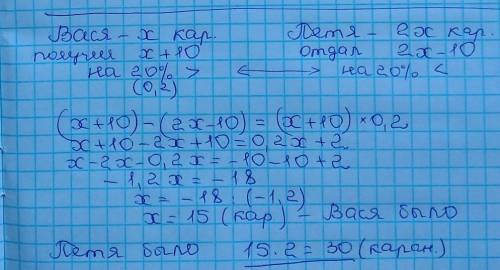 Вася – х кар. Петя – 2х кар.
получил х+10 отдал 2х-10
на 20% > ⟷ на 20% <
(0,2)
(х+10) – (2х-10) = (х+10) × 0,2
х+10-2х+10=0,2х+2
х-2х-0,2х=-10-10+2
-1,2х = -18
х= -18 : (-1,2)
х=15 (кар) – Вася было
Петя было 15·2=30 (каран.)